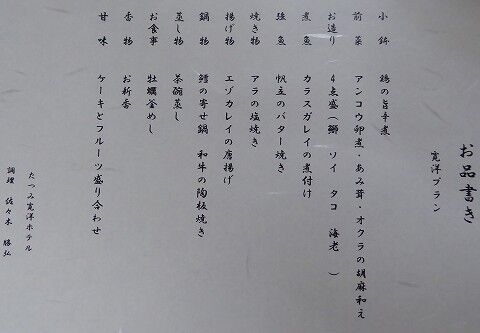 お品書き
寛洋プラン
小鉢 鶏の旨辛煮
前菜 アンコウ卵煮・あみ茸・オクラの胡麻和え
お造り 4点盛(鰤 ソイ タコ 海老 )
煮魚 カラスガレイの煮付け
強魚 帆立のバター焼き
焼き物 アラの塩焼き
揚げ物 エゾカレイの唐揚げ
鍋物 鱈の寄せ鍋 和牛の陶板焼き
蒸し物 茶碗蒸し
お食事 牡蠣釜めし
香物 お新香
甘味 ケーキとフルーツ盛り合わせ
たつみ寛洋ホテル
調理 佐々木 勝弘